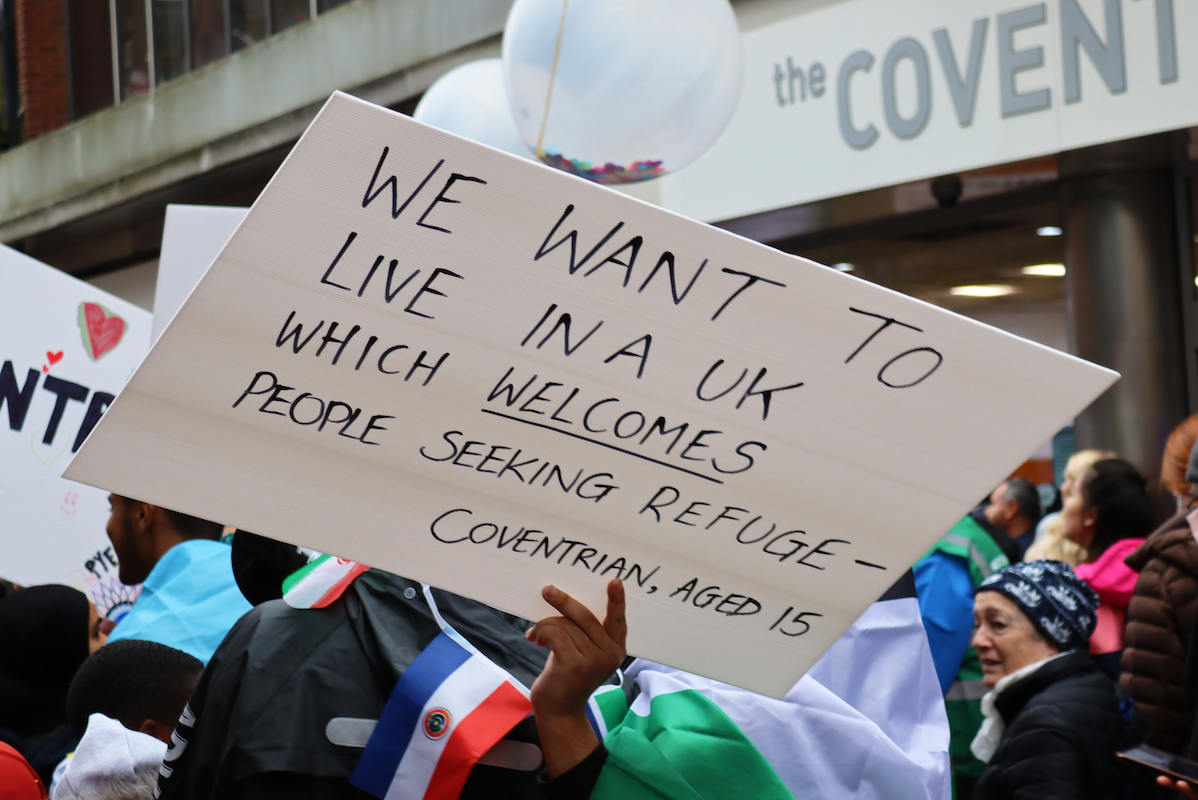 the COVENT
WE WANT TO
LIVE IN A UK
WHICH WELCOMES
PEOPLE SEEKING REFUGE –
COVENTRIAN, AGED 15
NTR
PYE